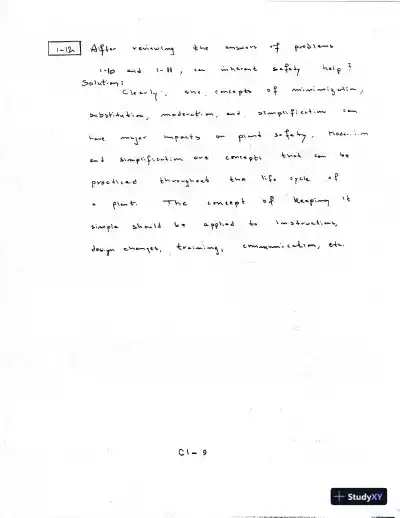 1-12 After reviewing the answers of problems
1-10 and 1-11, can inherent safety help?
Solution:
Clearly, the concepts of minimization,
substitution, moderation, and simplification can
have major impacts on plant safety.
and simplification are concepts that can be
practiced throughout the life cycle of
a plant. The concept of keeping it
simple should be applied to instructions,
design changes, training, communication, etc.
C1-9
StudyXY